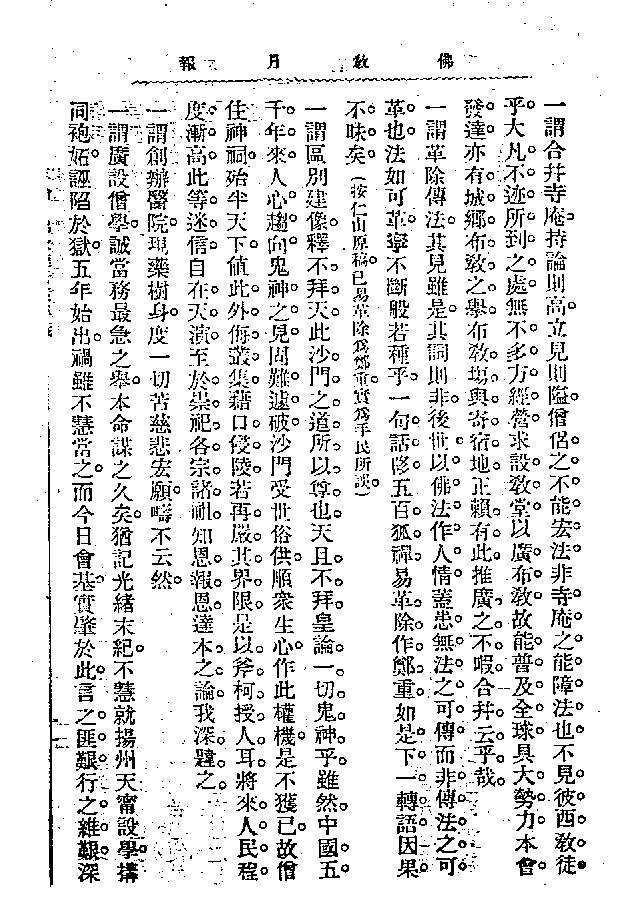 佛教月報
一謂合幷寺庵持論則高立見則隘僧侶之不能宏法非寺庵之能障法也不見彼西敎徒
乎大凡不迹所到之處無不多方經營求設敎堂以廣布敎故能普及全球具大勢力本會
發達亦有城鄉布敎之舉布敎塲與寄宿地正賴有此推廣之不暇合幷云乎哉
一謂革除傳法其見雖是其詞則非後世以佛法作人情蓋患無法之可傳而非傳法之可
革也法如可革寧不斷般若種乎一句話墮五百狐禪易革除作鄭重如是下一轉語因果
不昧矣(按仁山原稿已易革除爲鄭重實爲手民所誤)
一謂區別建像釋不拜天此沙門之道所以尊也天且不拜皇論一切鬼神乎雖然中國五
千年來人心趨向鬼神之見固難遽破沙門受世俗供順衆生心作此權機是不獲已故僧
住神祠殆半天下値此外侮叢集藉口侵陵若再嚴其界限是以斧柯授人耳將來人民程
度漸高此等迷信自在天演至於祟祀各宗諸祖知恩報恩達本之論我深韙之
一謂創辦醫院現藥樹身度一切苦慈悲宏願疇不云然
一謂廣設僧學誠當務最急之舉本命謀之久矣猶記光緒末紀不慧就揚州天甯設學搆
同袍妬誣陷於獄五年始出禍雖不慧當之而今日會基實肇於此言之匪艱行之維艱深